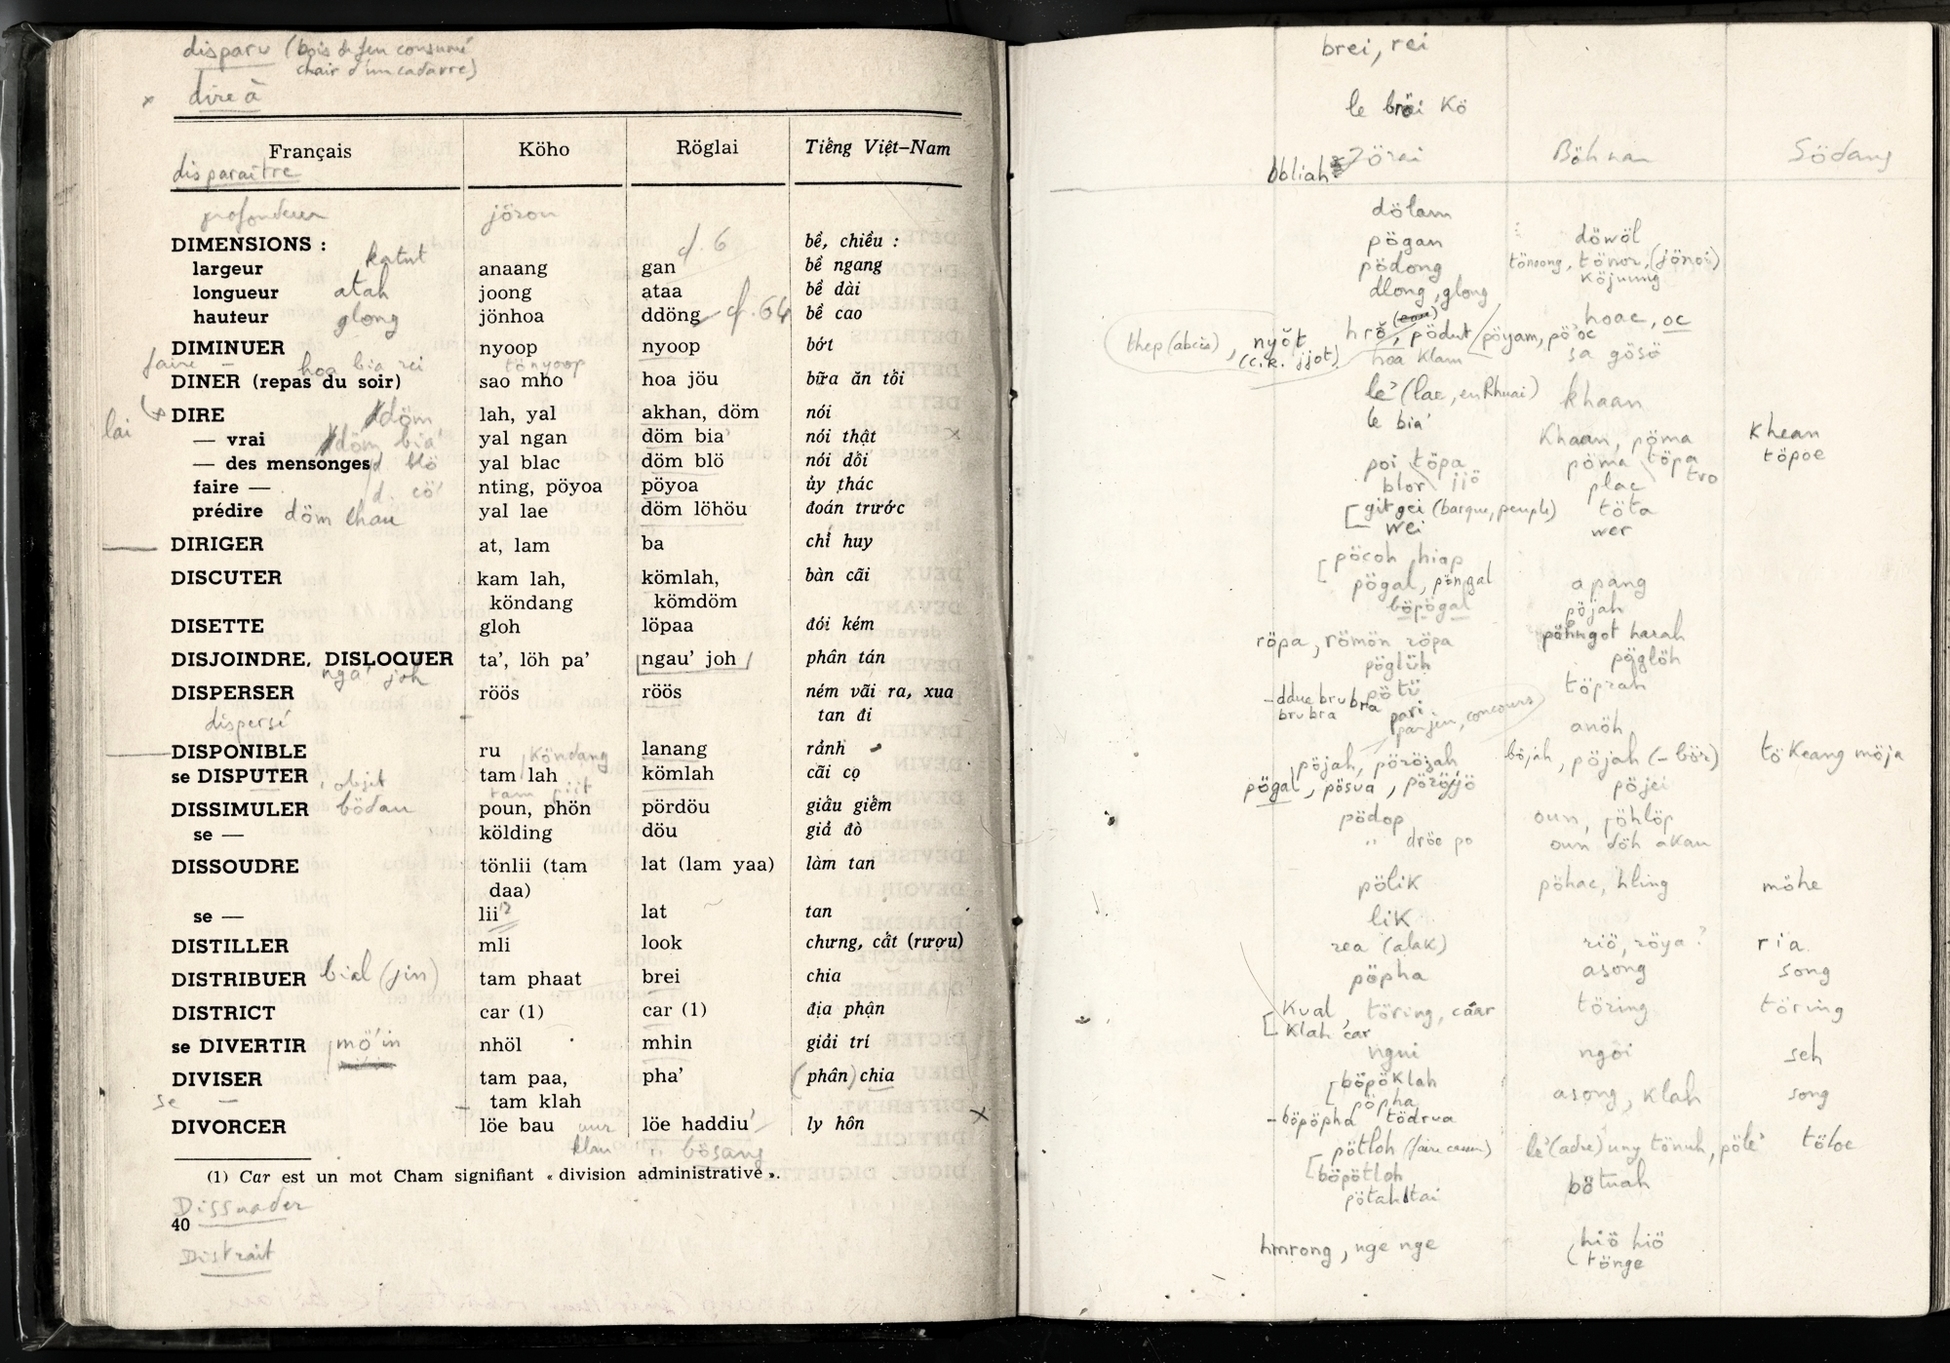 disparu (bois de feu consumé
chair d'un cadavre)
x dire à
Français Köho Röglai Tiếng Việt-Nam
disparaître
profondeur jöron
DIMENSIONS : bề, chiều :
katut cf. 6
largeur anaang gan bề ngang
longueur atah joong ataa bề dài
hauteur glong jönhoa ddöng cf. 64 bề cao
DIMINUER nyoop nyoop bớt
faire — hoa bia rei tönyoop
DINER (repas du soir) sao mho hoa jöu bữa ăn tối
DIRE döm lah, yal akhan, döm nói
lai — vrai döm bia' yal ngan döm bia' nói thật x
— des mensonges d blö yal blac döm blö nói dối
faire — d. cö' nting, pöyoa pöyoa ủy thác
prédire döm lhau yal lae döm löhöu đoán trước
DIRIGER at, lam ba chỉ huy
DISCUTER kam lah, kömlah, bàn cãi
köndang kömdöm
DISETTE gloh löpaa đói kém
DISJOINDRE, DISLOQUER ta', löh pa' ngau' joh phân tán
nga' joh
DISPERSER röös röös ném vãi ra, xua
dispersé tan đi
DISPONIBLE ru lanang rảnh
köndang
se DISPUTER, objet tam lah kömlah cãi cọ
tam piit
DISSIMULER bödau poun, phön pördöu giấu giếm
se — kölding döu giả đò
DISSOUDRE tönlii (tam lat (lam yaa) làm tan
daa)
se — lii lat tan
DISTILLER mli look chưng, cất (rượu)
DISTRIBUER bial (jin) tam phaat brei chia
DISTRICT car (1) car (1) địa phận
se DIVERTIR mö'in nhöl mhin giải trí
DIVISER tam paa, pha' (phân) chia
se — tam klah
DIVORCER löe bau löe haddiu' ly hôn x
klau " bösang
(1) Car est un mot Cham signifiant « division administrative ».
Dissuader
40
Distrait
brei, rei
le brei Kö
bbliah Jörai Böhnan Södang
dölam
pögan döwöl
pödong tönoong, tönor, (jönoi)
dlong, glong köjuung
hoac, oc
thep (abcès), nyŏt hrŏ, pödut / pöyam, pö'oc
(c.k. jjot) hoa klam sa gösö
lĕ (lac, en Rhuai) khaan
le bia'
Khaan, pöma Khean
poi töpa pöma töpa töpoe
blor jiö plac tro
git gei (barque, peuple) töta
wei wer
pöcoh, hiap
pögal, pöngal apang
böpögal pöjah
röpa, römön röpa pöhngot harah
pöglŭh pöglöh
ddue bru bra pötŭ töprah
bru bra pari
par jeu, concours anöh
pöjah, pöröjah böjah, pöjah (-bör) tö keang möja
pögal, pösua, pöröjö pöjei
pödop oun, jöhlöp
" dröe po oun döh akau
pölik pöhac, hling möhe
lik
rea (alak) riö, röya ? ria
pöpha asong song
Kual, töring, caar töring töring
Klah car
ngui ngöi seh
böpöklah
pöpha asong, klah song
- böpöpha tödrua
pötloh (faire causer) töloe
böpötloh bötuah
pötah tai
hmrong, nge nge hiö hiö
tönge